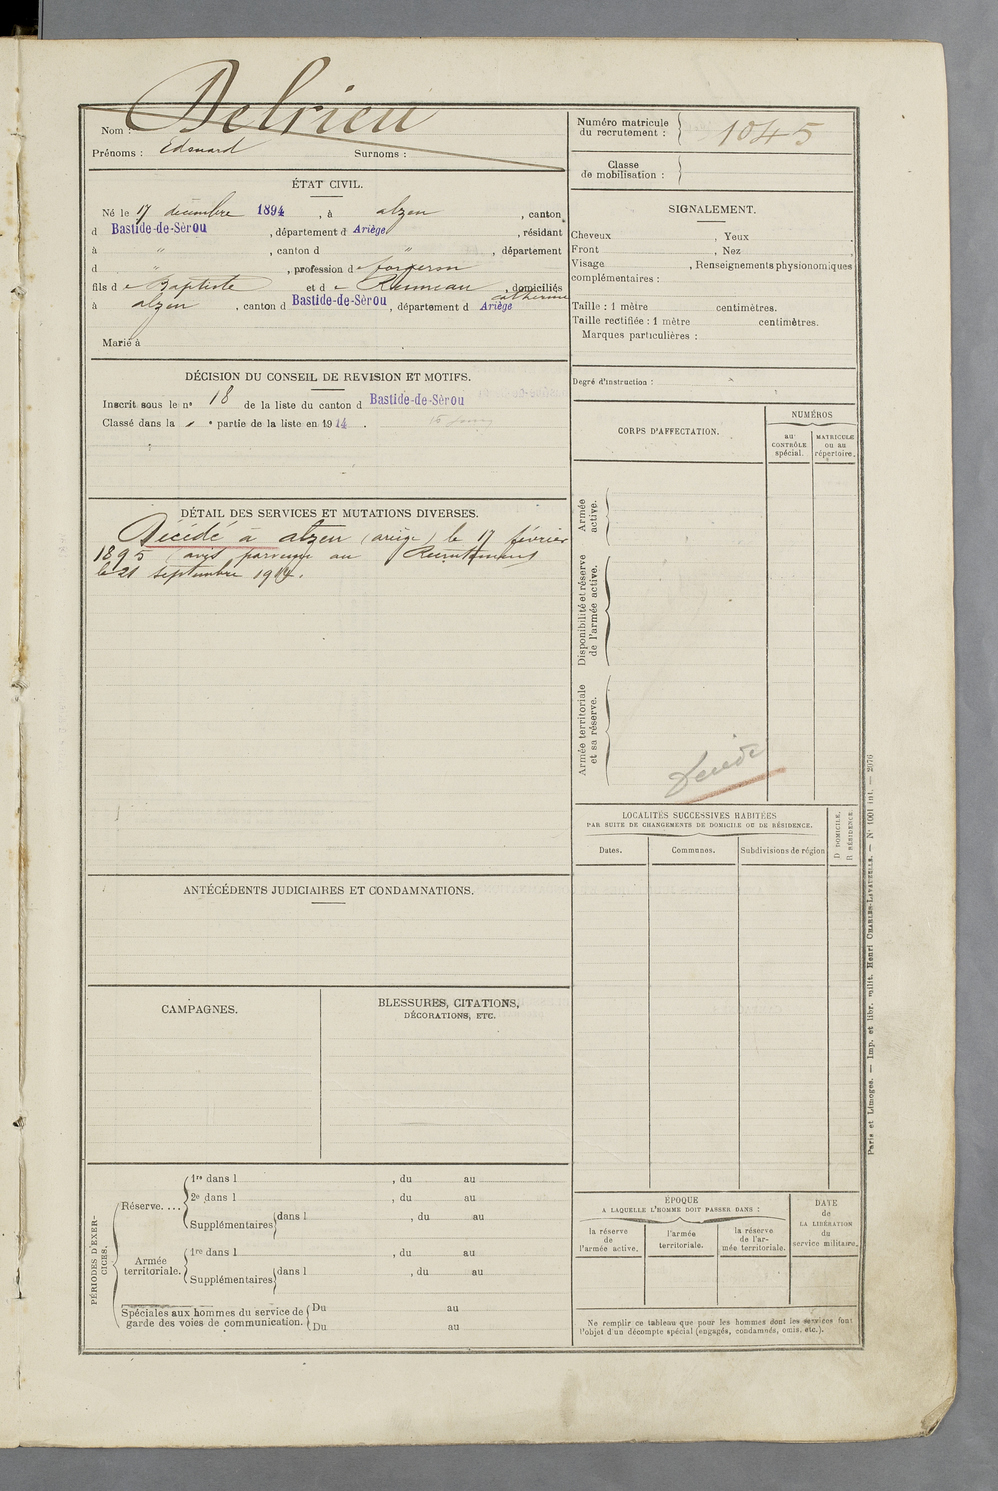 Nom : Delrieu
Prénoms : Edouard Surnoms :
Numéro matricule
du recrutement : 1045
Classe
de mobilisation :
ÉTAT CIVIL.
Né le 17 décembre 1894, à alzen, canton
d Bastide-de-Sérou, département d Ariège, résidant
à " , canton d " , département
d " , profession de forgeron
fils de Baptiste et de Rumeau catherine, domiciliés
à alzen, canton d Bastide-de-Sérou, département d Ariège
Marié à
SIGNALEMENT.
Cheveux , Yeux .
Front , Nez .
Visage , Renseignements physionomiques
complémentaires :
Taille : 1 mètre centimètres.
Taille rectifiée : 1 mètre centimètres.
Marques particulières :
Degré d'instruction :
DÉCISION DU CONSEIL DE REVISION ET MOTIFS.
Inscrit sous le nº 18 de la liste du canton d Bastide-de-Sérou
Classé dans la º partie de la liste en 1914.
CORPS D'AFFECTATION.
NUMÉROS
au
CONTRÔLE
spécial.
MATRICULE
ou au
répertoire.
Armée
active.
Disponibilité et réserve
de l'armée active.
Armée territoriale
et sa réserve.
Décédé
DÉTAIL DES SERVICES ET MUTATIONS DIVERSES.
Décédé à alzen (ariège) le 17 février
1895 (avis parvenu au Recrutement
le 21 septembre 1914.
LOCALITÉS SUCCESSIVES HABITÉES
PAR SUITE DE CHANGEMENTS DE DOMICILE OU DE RÉSIDENCE.
Dates. Communes. Subdivisions de région
D DOMICILE.
R RÉSIDENCE.
ANTÉCÉDENTS JUDICIAIRES ET CONDAMNATIONS.
CAMPAGNES.
BLESSURES, CITATIONS,
DÉCORATIONS, ETC.
PÉRIODES D'EXER-
CICES.
Réserve....
1re dans l , du au
2e dans l , du au
Supplémentaires dans l , du au
Armée
territoriale.
1re dans l , du au
Supplémentaires dans l , du au
Spéciales aux hommes du service de
garde des voies de communication.
Du au
Du au
ÉPOQUE
A LAQUELLE L'HOMME DOIT PASSER DANS :
la réserve
de
l'armée active.
l'armée
territoriale.
la réserve
de l'ar-
mée territoriale.
DATE
de
LA LIBÉRATION
du
service militaire.
Ne remplir ce tableau que pour les hommes dont les services font
l'objet d'un décompte spécial (engagés, condamnés, omis, etc.).
Paris et Limoges. — Imp. et libr. milit. Henri CHARLES-LAVAUZELLE. — Nº 1001 int. — 2976